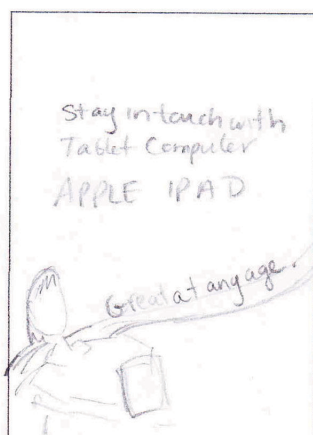 Stay in touch with
Tablet Computer
APPLE IPAD
Great at any age.